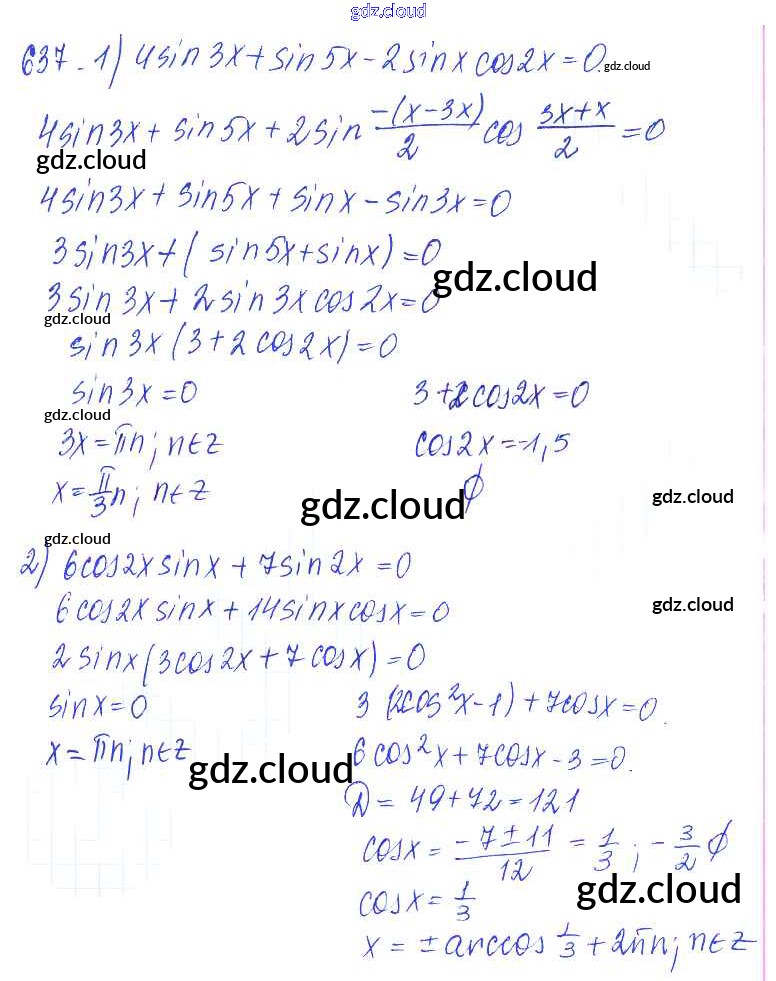 gdz.cloud
637. 1) 4sin3x + sin5x - 2sinx cos2x = 0. gdz.cloud
4sin3x + sin5x + 2sin -(x-3x)/2 cos (3x+x)/2 = 0
gdz.cloud
4sin3x + sin5x + sinx - sin3x = 0
3sin3x + (sin5x + sinx) = 0
gdz.cloud
3sin3x + 2sin3x cos2x = 0
gdz.cloud
sin3x (3 + 2cos2x) = 0
sin3x = 0 3 + 2cos2x = 0
gdz.cloud
3x = πn; n∈Z cos2x = -1,5
x = π/3 n; n∈Z gdz.cloud ∅ gdz.cloud
gdz.cloud
2) 6cos2x sinx + 7sin2x = 0
6cos2x sinx + 14sinx cosx = 0 gdz.cloud
2sinx (3cos2x + 7cosx) = 0
sinx = 0 3(2cos²x - 1) + 7cosx = 0.
x = πn; n∈Z 6cos²x + 7cosx - 3 = 0.
gdz.cloud
D = 49 + 72 = 121
cosx = (-7 ± 11)/12 = 1/3; -3/2 ∅
gdz.cloud
cosx = 1/3
x = ± arccos 1/3 + 2πn; n∈Z